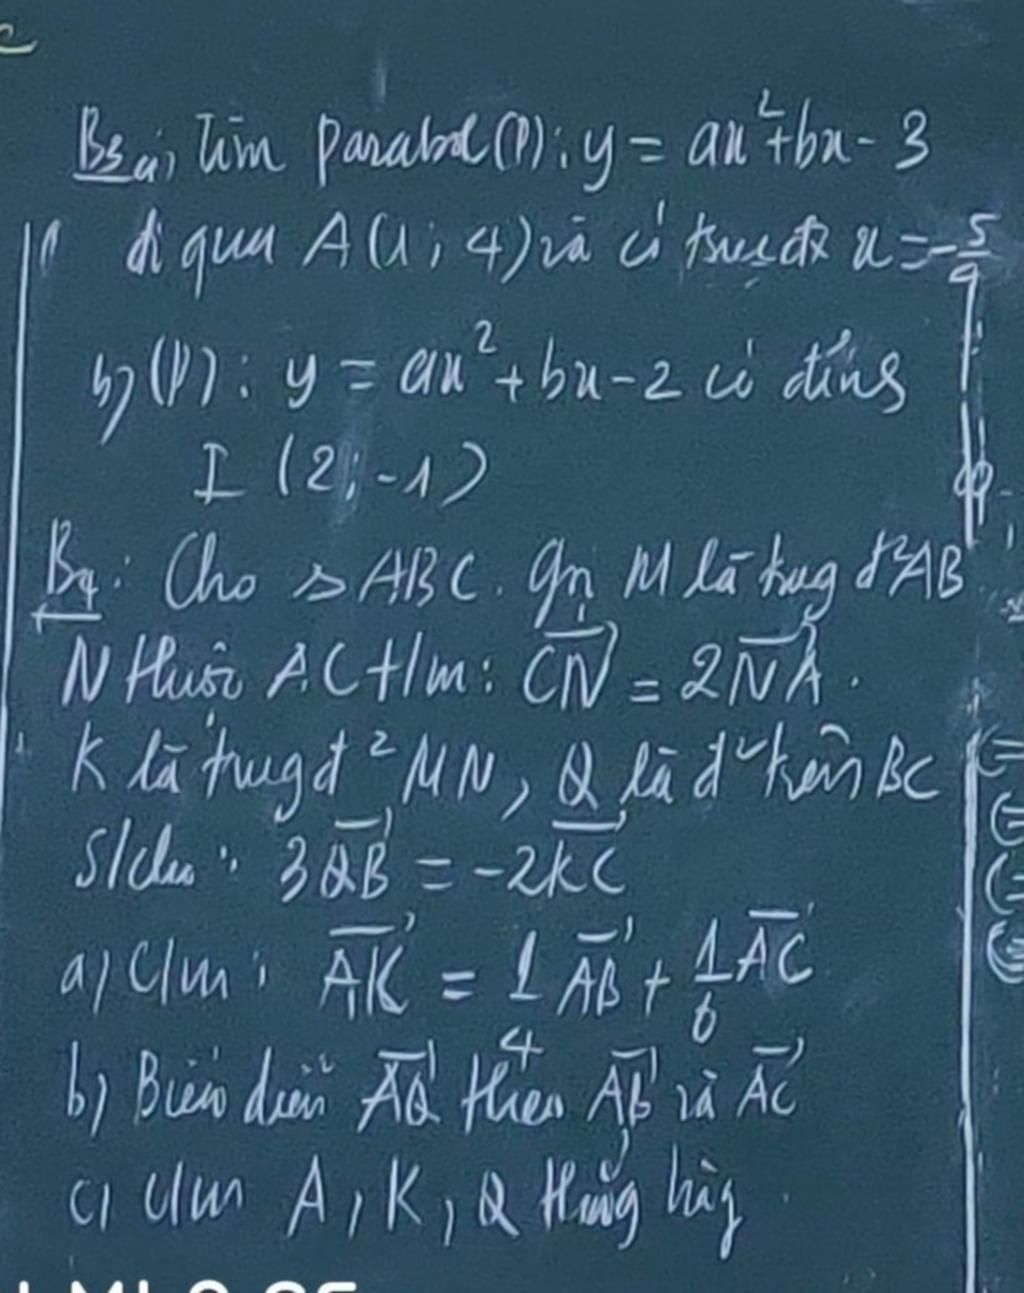 B3 a) Tìm parabol (P): y = ax² + bx - 3
đi qua A(1; 4) và có trục đx x = -5/4
b) (P): y = ax² + bx - 2 có đỉnh
I (2; -1)
B4: Cho △ABC. Gọi M là trug đ² AB
N thuộc AC t/m: \overrightarrow{CN} = 2\overrightarrow{NA}.
K là trug đ² MN, Q là đ² trên BC
S/cho: 3\overrightarrow{QB} = -2\overrightarrow{KC}
a) C/m: \overrightarrow{AK} = 1/4 \overrightarrow{AB} + 1/6 \overrightarrow{AC}
b) Biểu diễn \overrightarrow{AQ} theo \overrightarrow{AB} và \overrightarrow{AC}
c) c/m A, K, Q thẳng hàg